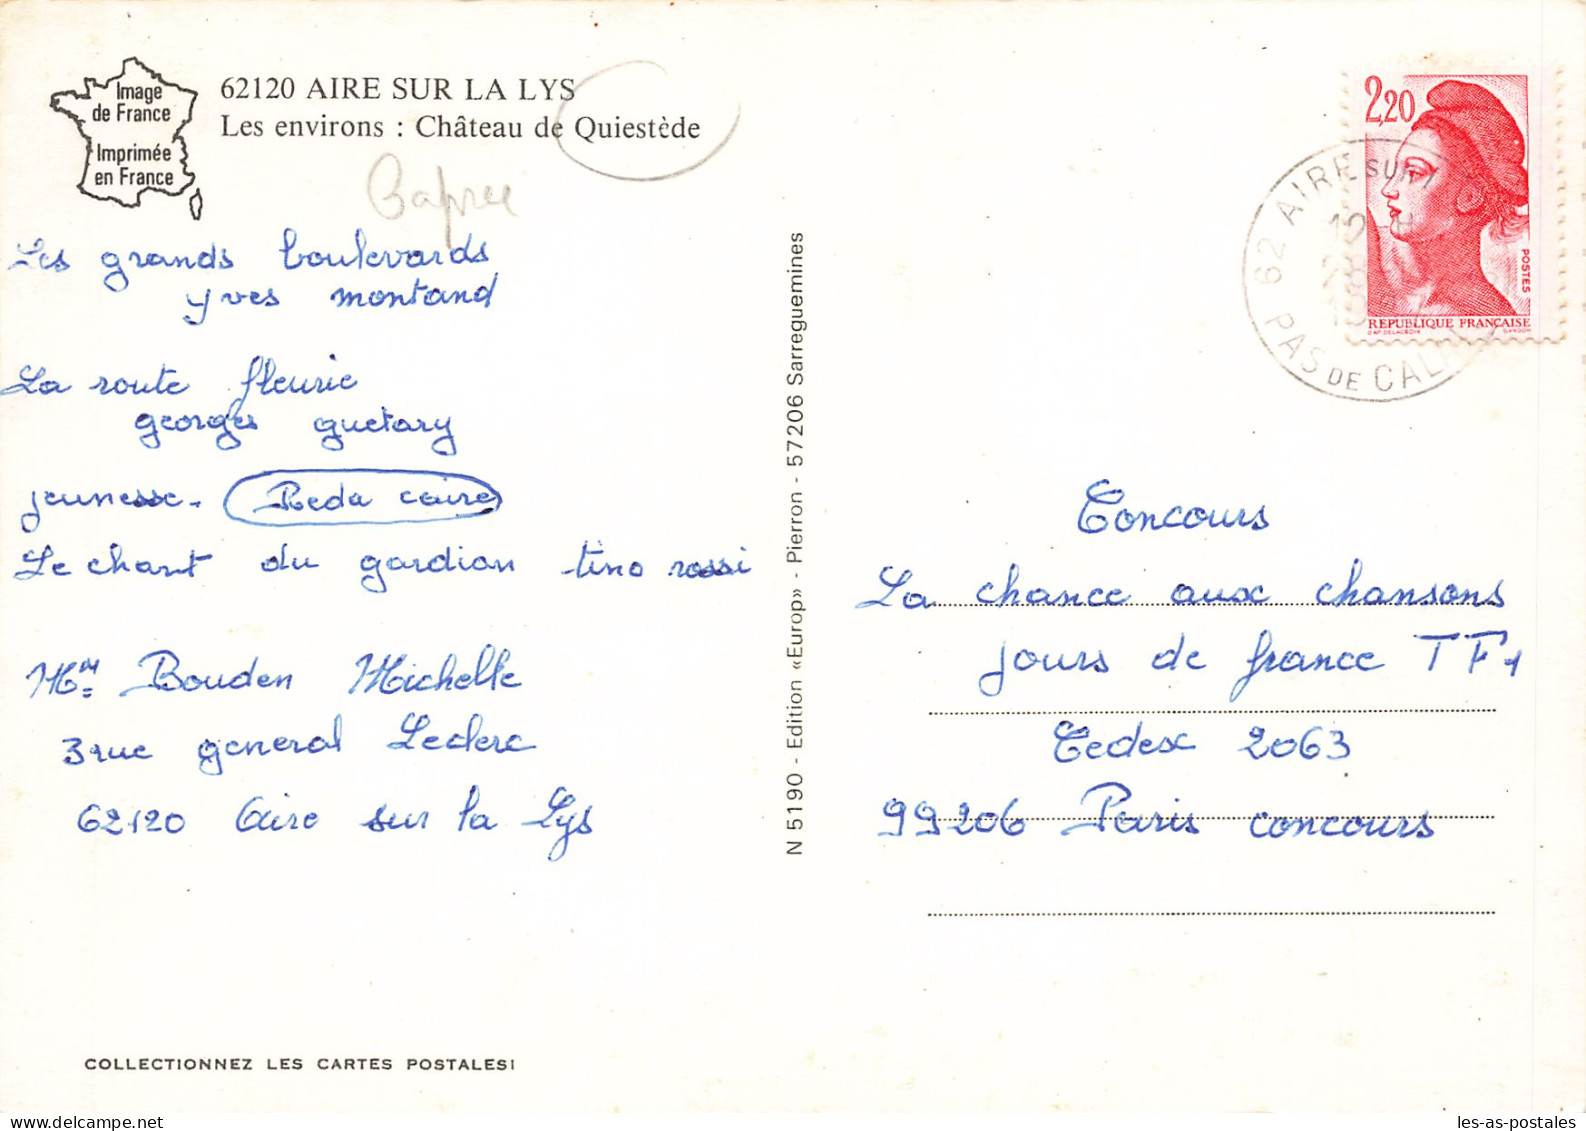 Image
de France
Imprimée
en France
62120 AIRE SUR LA LYS
Les environs : Château de Quiestède
Les grands boulevards
yves montand
La route fleurie
georges guetary
jeunesse. Reda caire
Le chant du gardian tino rossi
Bouden Michelle
3 rue general Leclerc
62120 Aire sur la Lys
COLLECTIONNEZ LES CARTES POSTALES!
N 5190 - Edition «Europ» - Pierron - 57206 Sarreguemines
2,20
POSTES
REPUBLIQUE FRANÇAISE
D'AP. DELACROIX GANDON
62 AIRE SUR
PAS DE CALAIS
Concours
La chance aux chansons
jours de france TF1
Cedex 2063
99206 Paris concours
les-as-postales